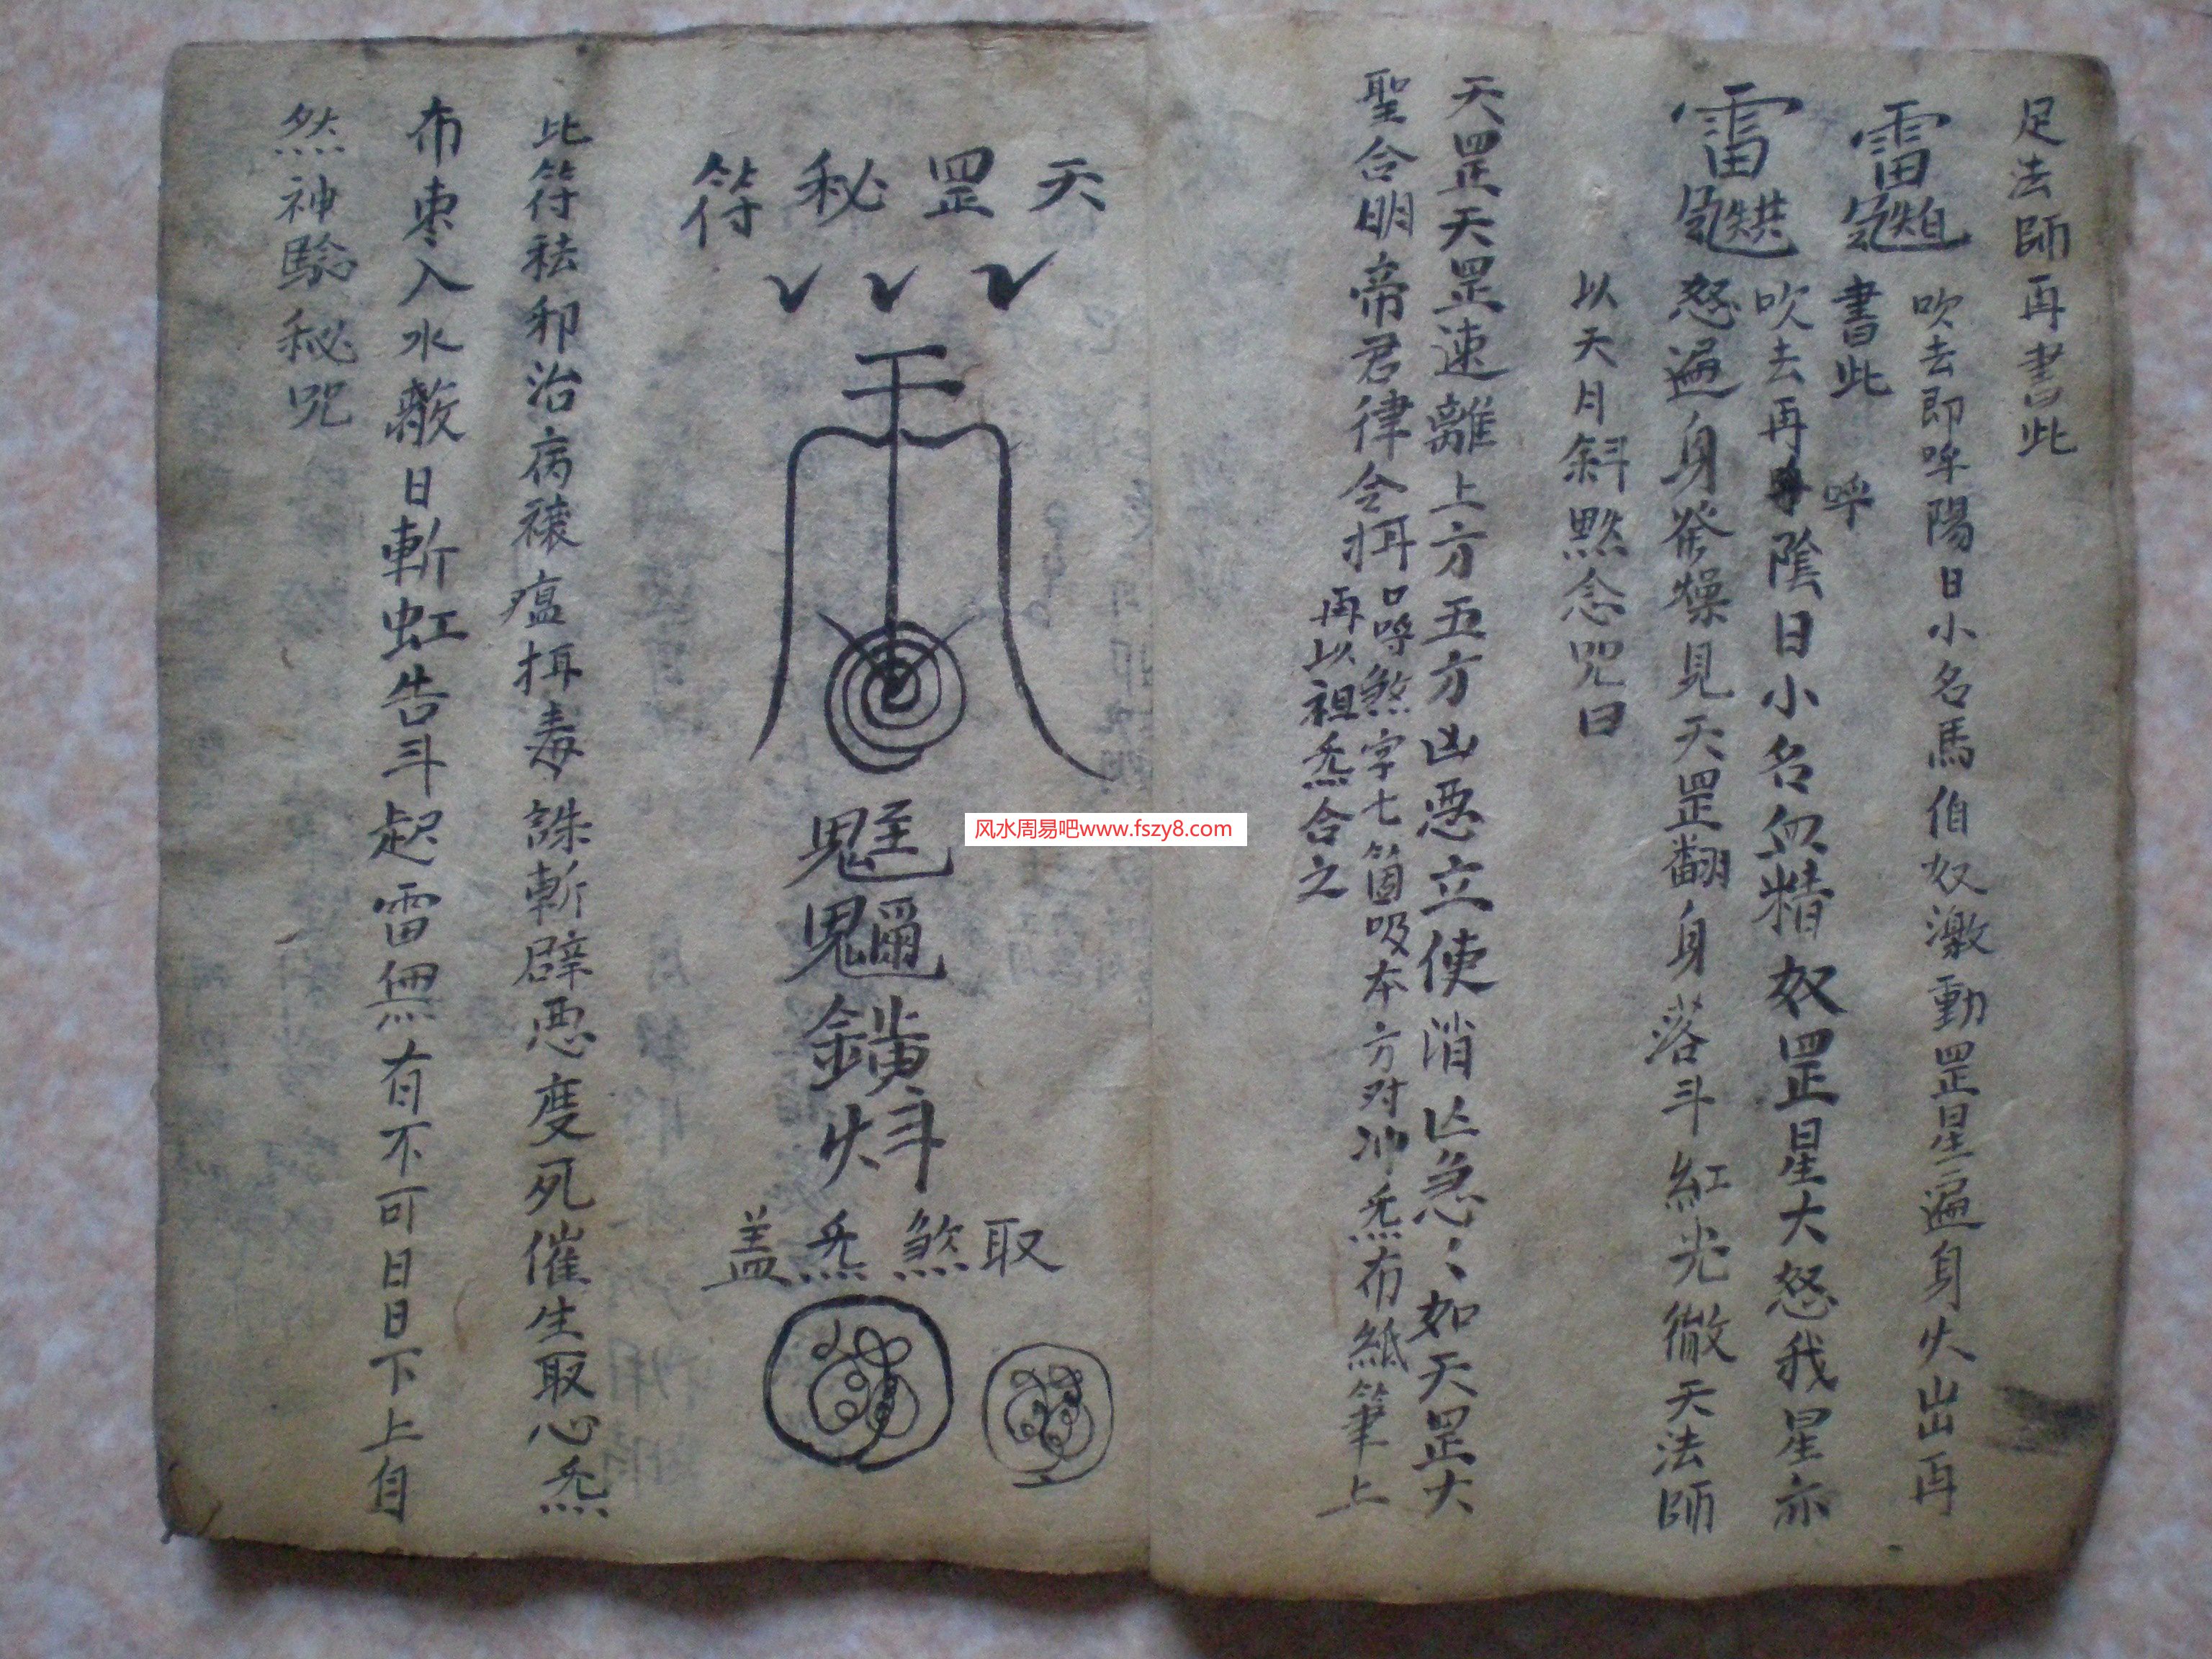 足法師再書此
吹去即呼陽日小名馬伯奴激動罡星遍身火出再
書此 呼
吹去再 陰日小名血精奴罡星大怒我星亦
怒遍身發燥見天罡翻身落斗紅光徹天法師
以天月斜默念咒曰
天罡天罡速離上方五方凶惡立使消亡急〻如天罡大
聖合明帝君律令揖
口呼煞字七箇吸本方对冲炁布紙筆上
再以祖炁合之
天罡秘符
魁
鑎
取煞炁盖
此符祛邪治病禳瘟揖毒誅斬辟惡度死催生取心炁
布枣入水救日斬虹告斗起雷無有不可日日下上自
然神驗秘咒
风水周易吧www.fszy8.com